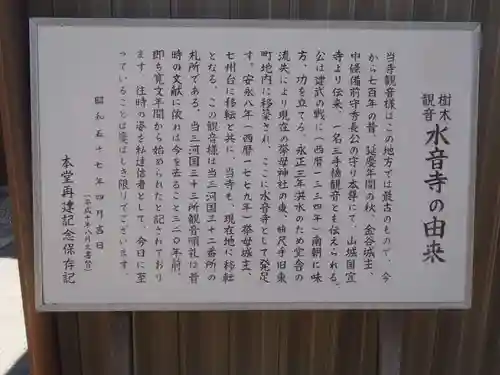 樹木
観音
水音寺の由来
当寺観音様はこの地方では最古のもので、今
から七百年の昔、延慶年間の秋、金谷城主、
中條備前守秀長公の守り本尊にて、山城国宣
寺より伝来、一名三手徳観音とも伝えられる。
公は建武の戦に(西暦一三三四年)南朝に味
方、功を立てる。永正三年洪水のため堂舎の
流失により現在の挙母神社の東、曲尺手旧東
町地内に移築され、ここに水音寺として発足
す。安永八年(西暦一七七九年)挙母城主、
七州台に移転と共に、当寺も、現在地に移転
となる。この観音様は当三河国三十二番所の
札所である。当三河国三十三所観音順礼は昔
時の文献に依れば今を去ること三二〇年前、
即ち寛文年間から始められたと記されており
ます。往時の姿を私達信者として、今日に至
っていることは慶ばしき限りでございます。
昭和五十七年四月吉日
(平成十年八月文書替)
本堂再建記念保存記